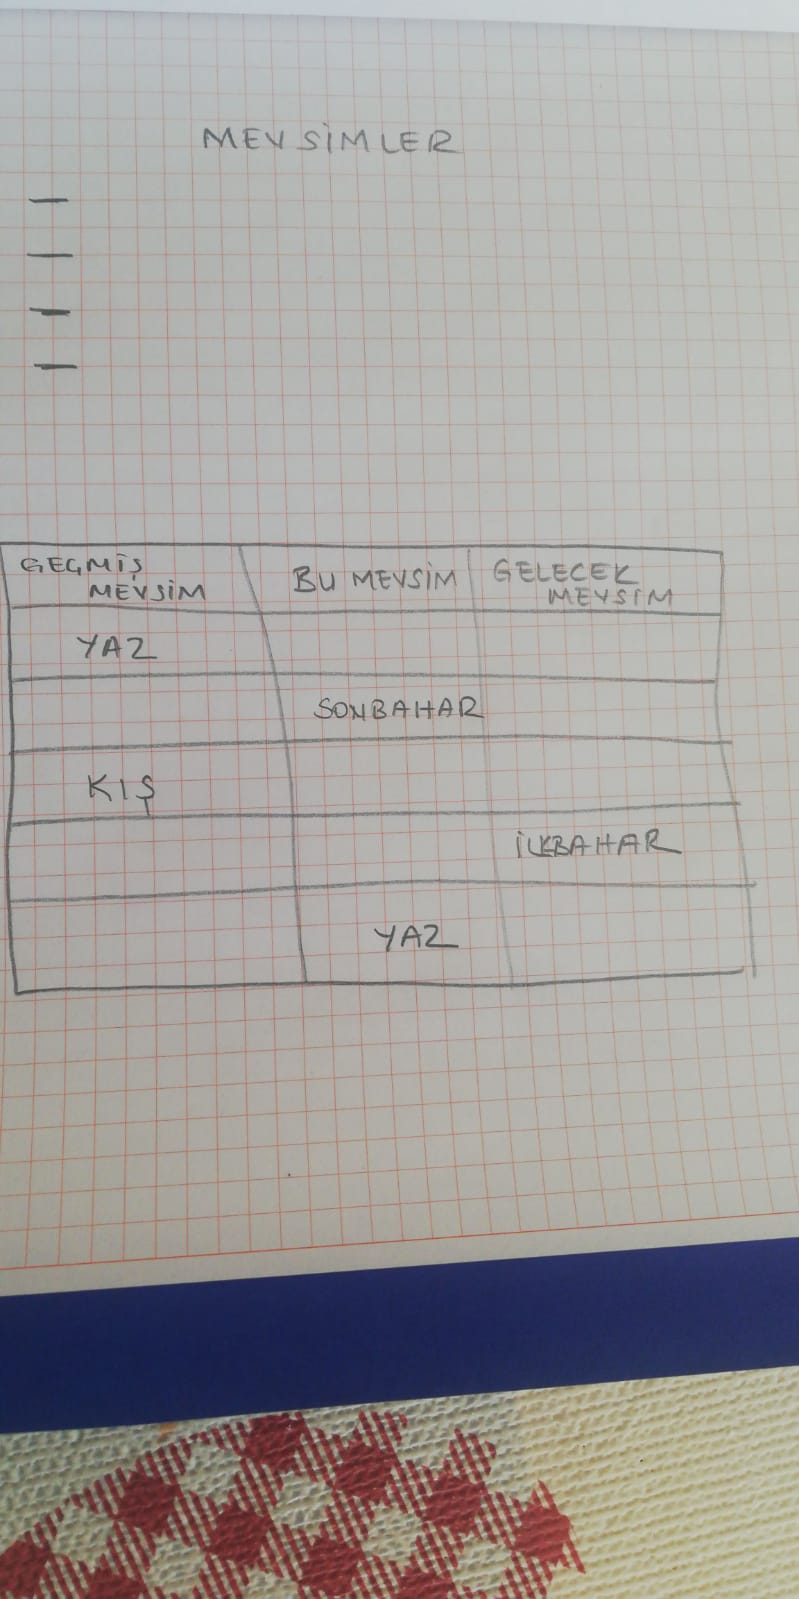 MEVSİMLER
—
—
—
—
GEÇMİŞ MEVSİM BU MEVSİM GELECEK MEVSİM
YAZ
SONBAHAR
KIŞ
İLKBAHAR
YAZ